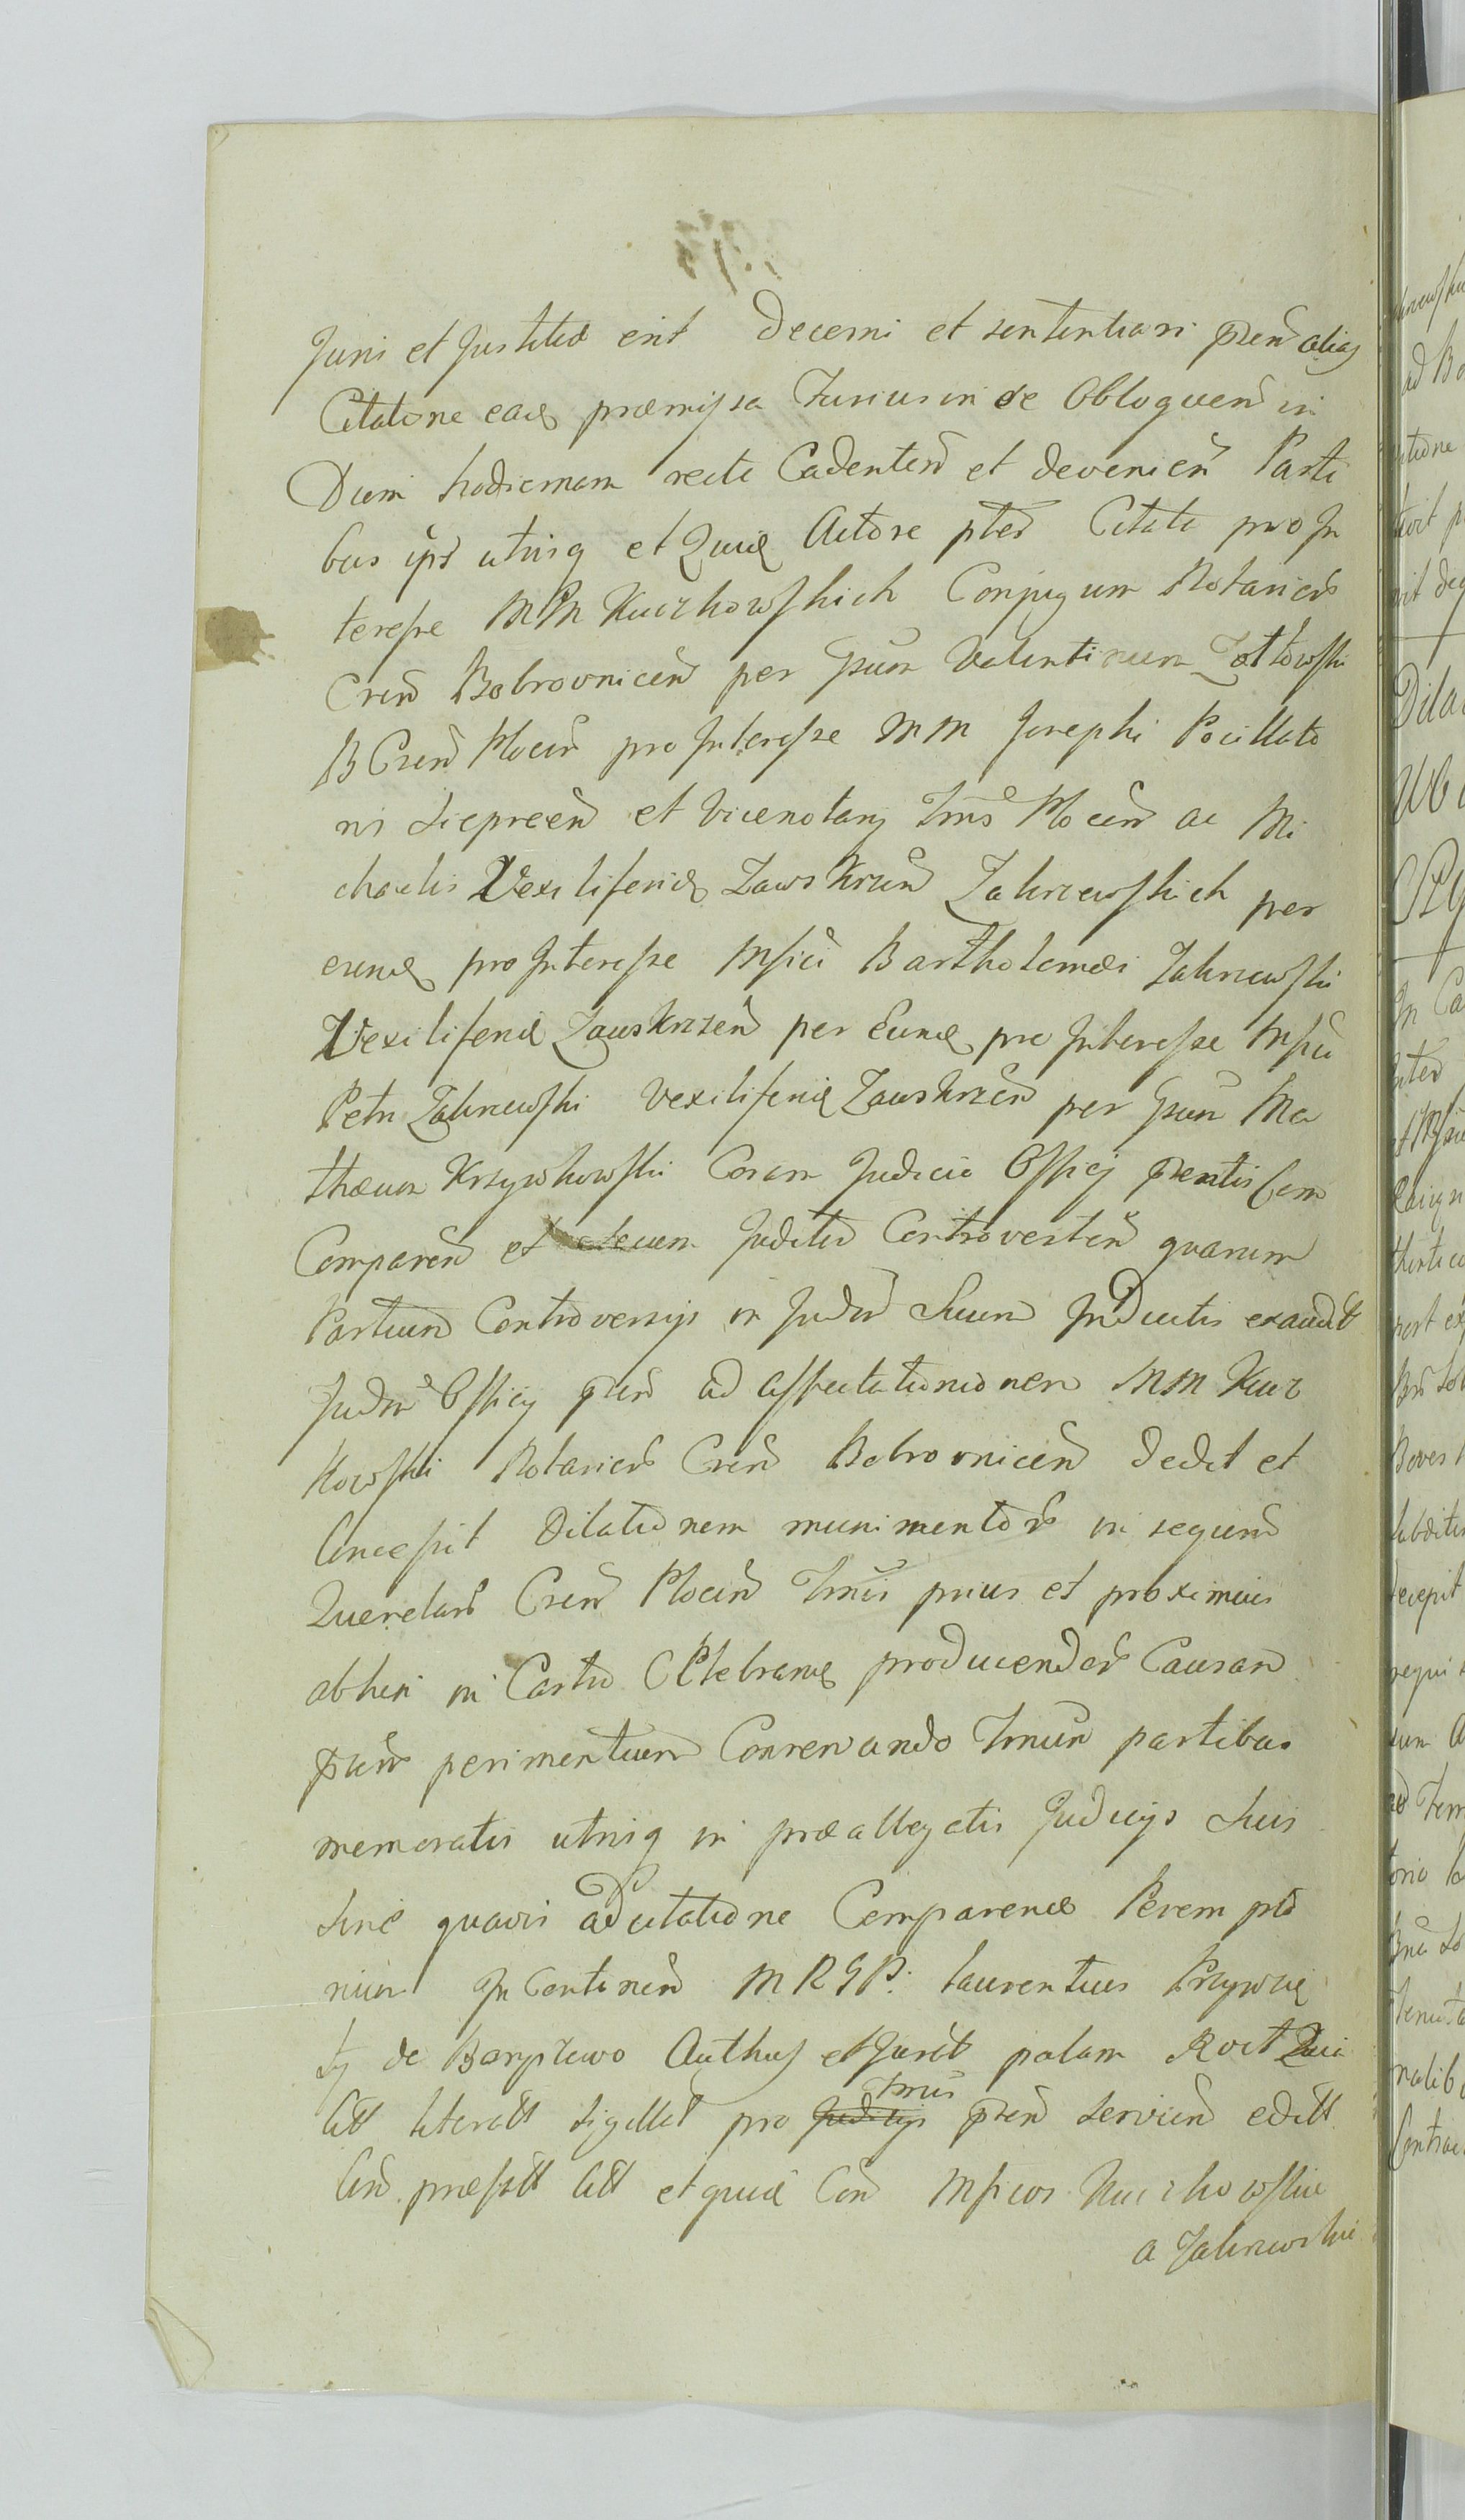 Juri et Justitiæ erit Decerni et sententiari præn alias
Citatione eadē præmissa Furiusin de Obloquen in
Diem hodiernam recte Cadenten et devenien Parti
bus ips utrisq et Quidē Actore pter Citati pro In
teresse MM Kuczkowskich Conjugum Notarior
Cren Bobrovnicen per Gsum Valentinum Zołtowski
B Cren Plocen pro Interesse MM Josephi Pocillato
ris Sieprcen et Vicenotarij Trris Plocen ac Mi
chaelis Vexiliferidē Zawskrzen Zakrzewskich per
eundē pro Interesse Mfici Bartholomæi Zakrzewski
Vexiliferidē Zawskrzen per Eundē pro Interesse Mfici
Petri Zakrzewski Vexiliferidē Zawskrzen per Gsum Ma
thæum Krzywkowski Coram Judicio Officij præntis
Comparen et Judicia Controverten quarum
Partium Controversijs in Judm Suum Inductis exaudit
Judm Officij præn ad affectationionem MM Kucz
kowski Notarior Cren Bobrovnicen dedit et
Concessit Dilationem munimentor in sequen
Querelar Cren Plocen Trris prius et proximius
abhin in Castro Celebrandē producendor Causam
præn perimentium Conservando Trnum partibus
memoratis utrisq in præallegatis Judicijs Suis
Sine quavis adcitatione Comparendē Perempto
rium In Continen M R G P. Laurentius
de Baryszewo Authus et Jurat palam Rvit Quia
litt literatt sigillat pro Judicijs Trris præn servien editt
præfatt litt et quidē Con Mficos Kuczkowskie
a Zakrzewskie